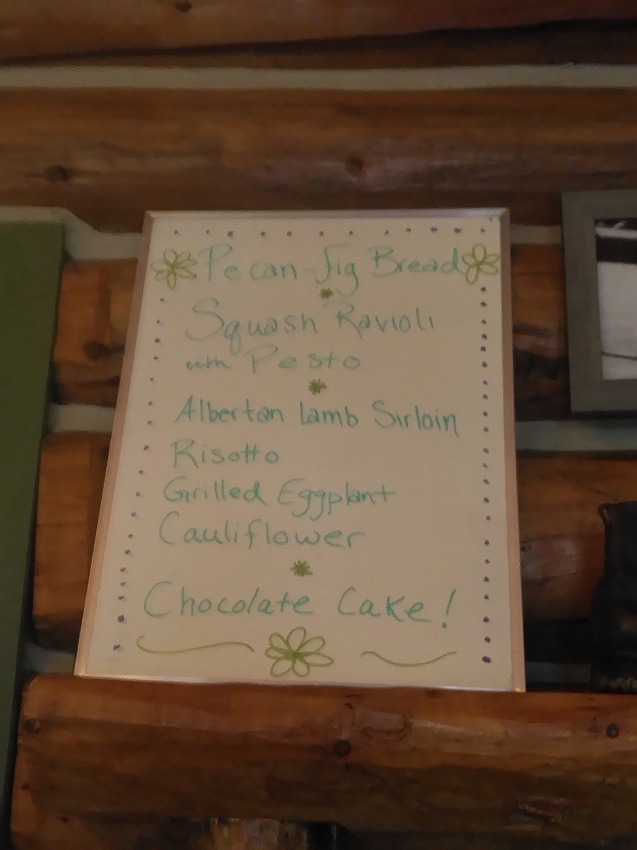 Pecan-fig Bread
Squash Ravioli
with Pesto
Albertan lamb Sirloin
Risotto
Grilled Eggplant
Cauliflower
Chocolate Cake!